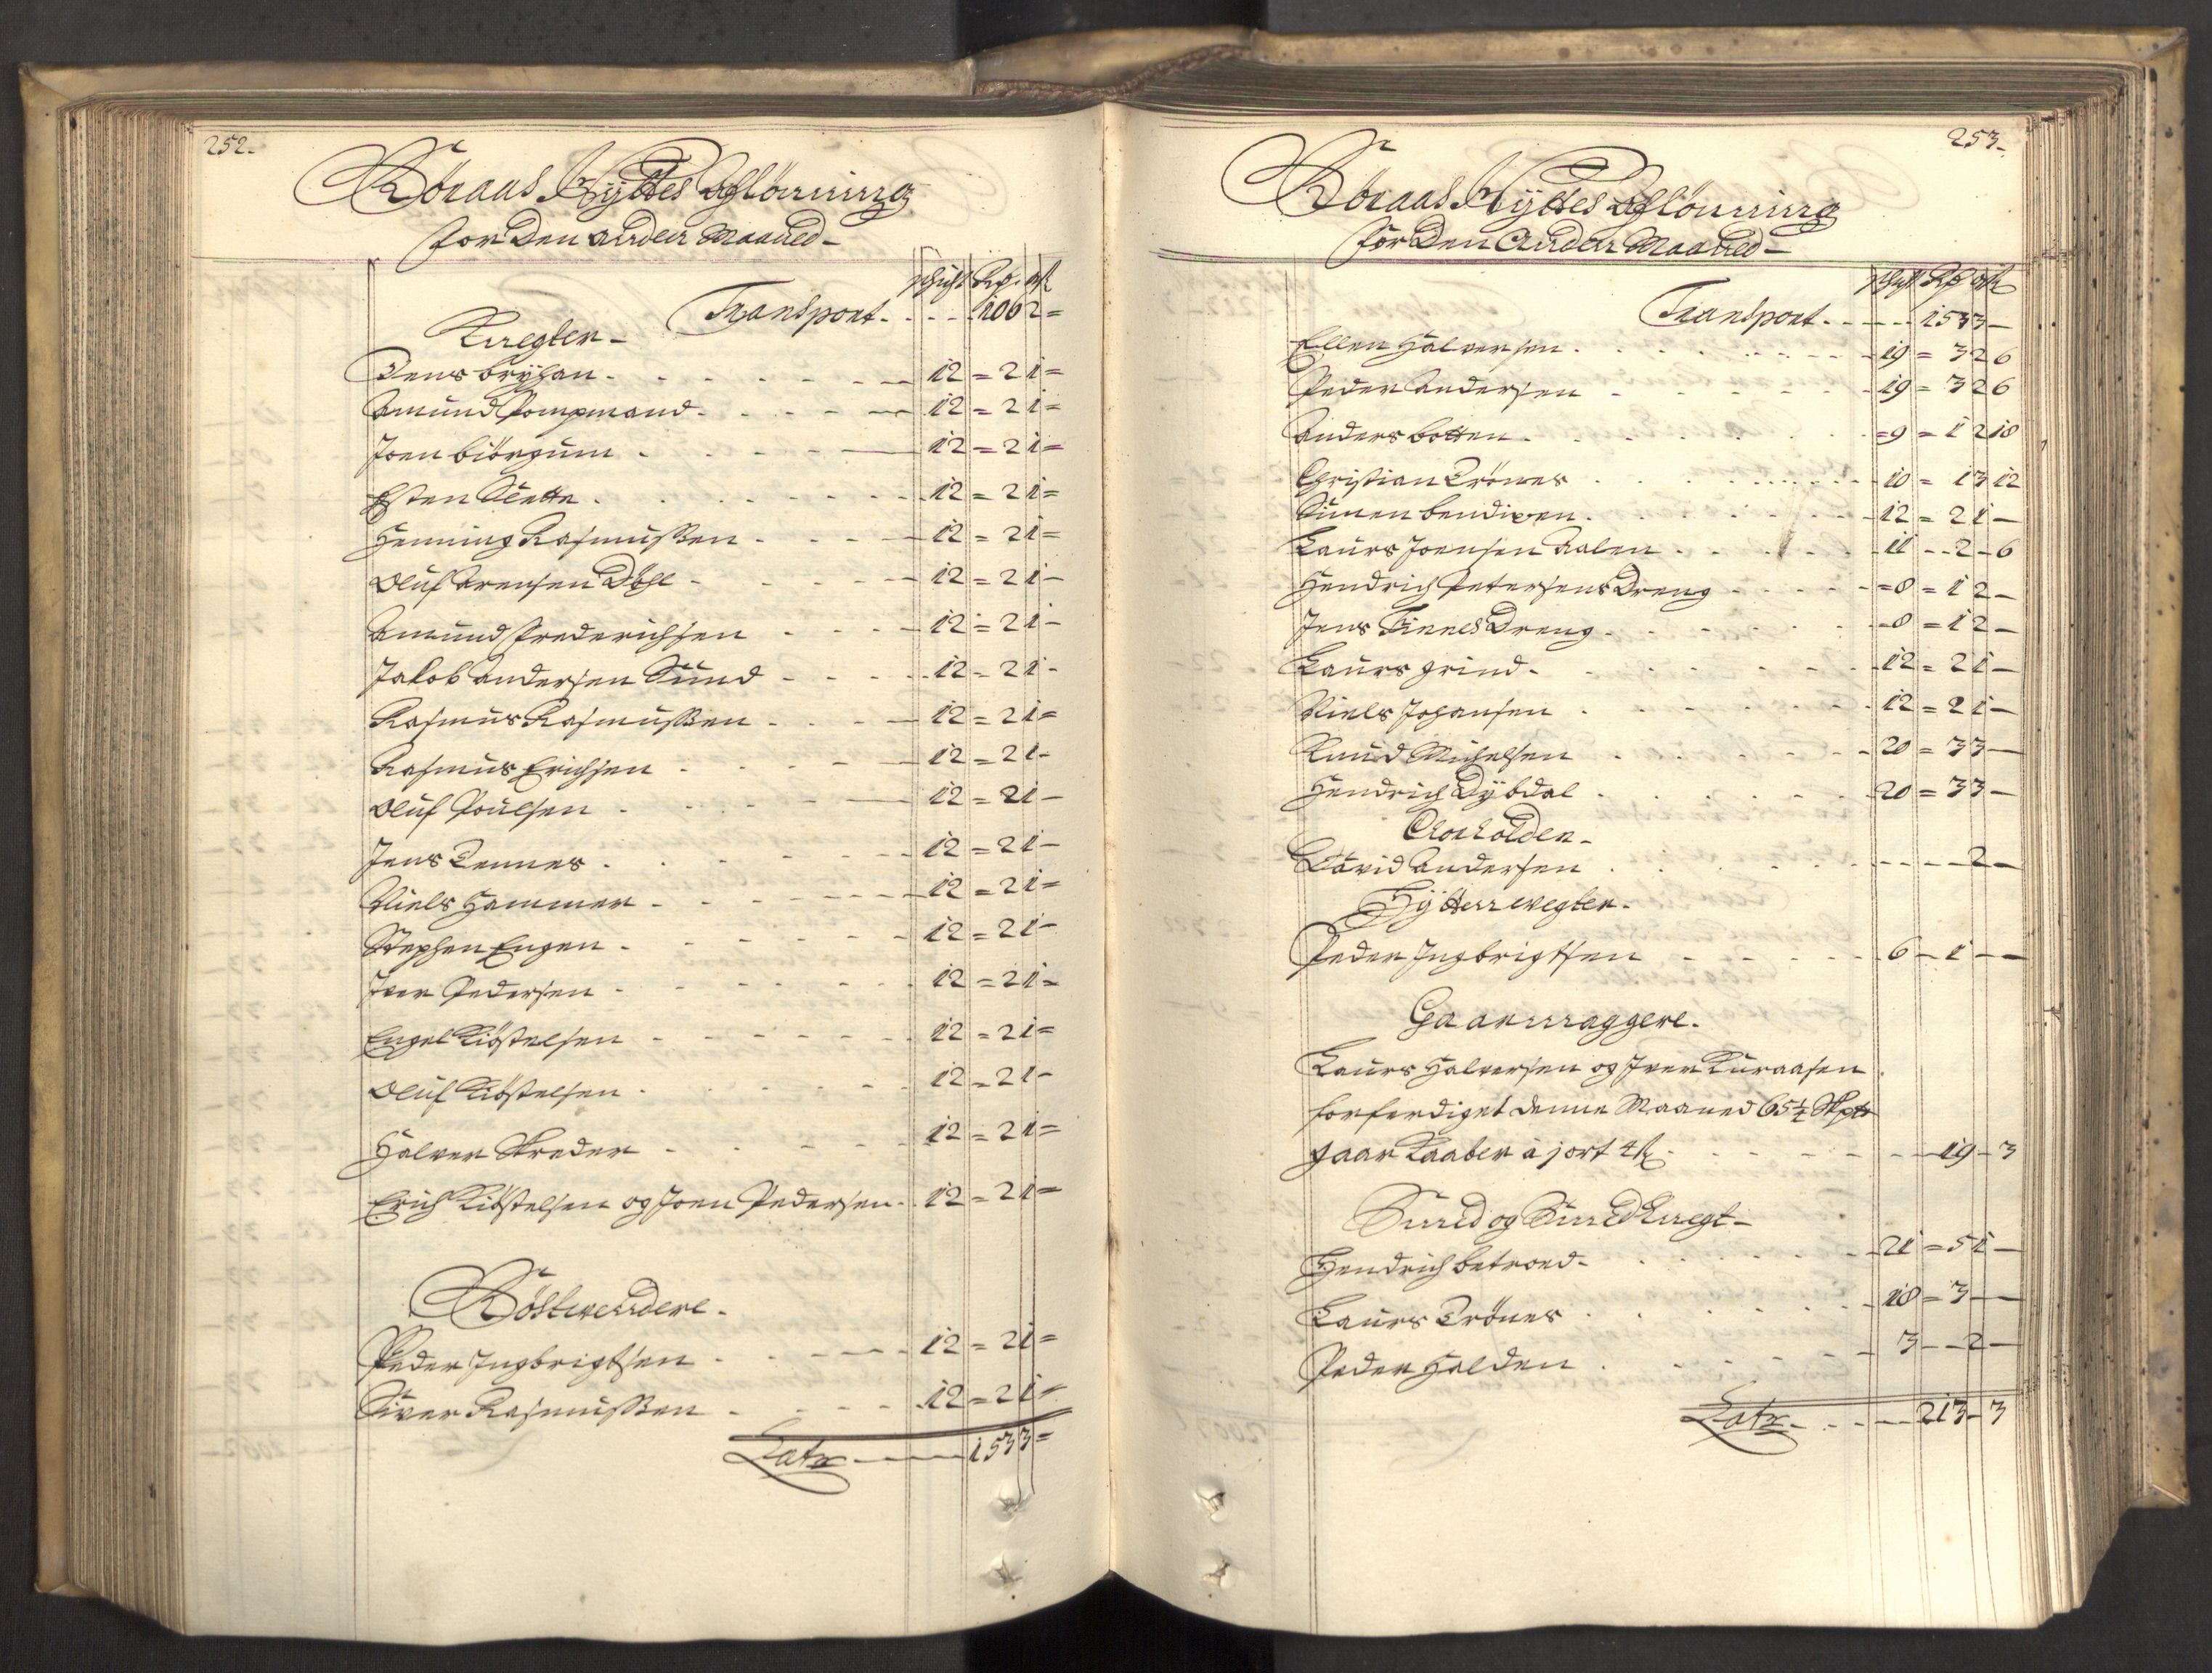 252.
Röraas Hyttes Afflönning
for Den anden Maaned -
Schigt Rp. ort
Transport - - - - 106 2 =
Knegter -
Jens bryhan - 12 = 2 1 =
Amund Pompmand - 12 = 2 1 =
Joen biörgum - 12 = 2 1 =
Esten - 12 = 2 1 =
Henning Rasmussen - 12 = 2 1 =
Oluf Arensen Döhl - 12 = 2 1 -
Amund Frederichsen - 12 = 2 1 -
Jakob Andersen Sund - 12 = 2 1 -
Rasmus Rasmussen - 12 = 2 1 =
Rasmus Erichsen - 12 = 2 1 -
Oluf Poulsen - 12 = 2 1 -
Jens - 12 = 2 1 -
Niels Hammer - 12 = 2 1 =
Stephen Engen - 12 = 2 1 -
Iver Pedersen - 12 = 2 1 =
Engel Kiöstelsen - 12 = 2 1 =
Oluf Kiöstelsen - 12 = 2 1 -
Halver Skreder - 12 = 2 1 =
Erich Kiöstelsen og Joen Pedersen - 12 = 2 1 =
Röstwendere -
Peder Ingbrigtsen - 12 = 2 1 =
Siver Rasmussen - 12 = 2 1 =
Latr - 153 3 =
253 -
Röraas Hyttes Afflönning
for Den Anden Maaned -
Schigt Rp ort
Transport - - - - 153 3 -
Ellen Halversen - 19 = 3 2 6
Peder Andersen - 19 = 3 2 6
Anders botten - = 9 = 1 2 18
Christian Trönes - 10 = 1 3 12
Simen bendixen - 12 = 2 1 -
Laurs Joensen Aalen - 11 - - 2 - 6
Hendrich Petersens Dreng - = 8 = 1 2 -
Jens Finnes Dreng - - 8 = 1 2 -
Laurs grind - 12 = 2 1 -
Niels Johansen - 12 = 2 1 -
Knud Michelsen - 20 = 3 3 -
Hendrich Dybdal - 20 = 3 3 -
David Andersen - 2 -
Hyttewegter -
Peder Ingbrigtsen - 6 - 1 - -
Gaarmaggere -
Laurs Halversen og Iver Kuraasen
forferdiget denne Maaned 65 1/4 Skptt
gaar Kaaber à j ort 4 s - 19 - 3
Smed og Smedknegt -
Hendrich betroed - 21 = 5 1 -
Laurs Trönes - 18 = 3 - -
Peder Halden - 3 - - 2 -
Latr - 213 - 3